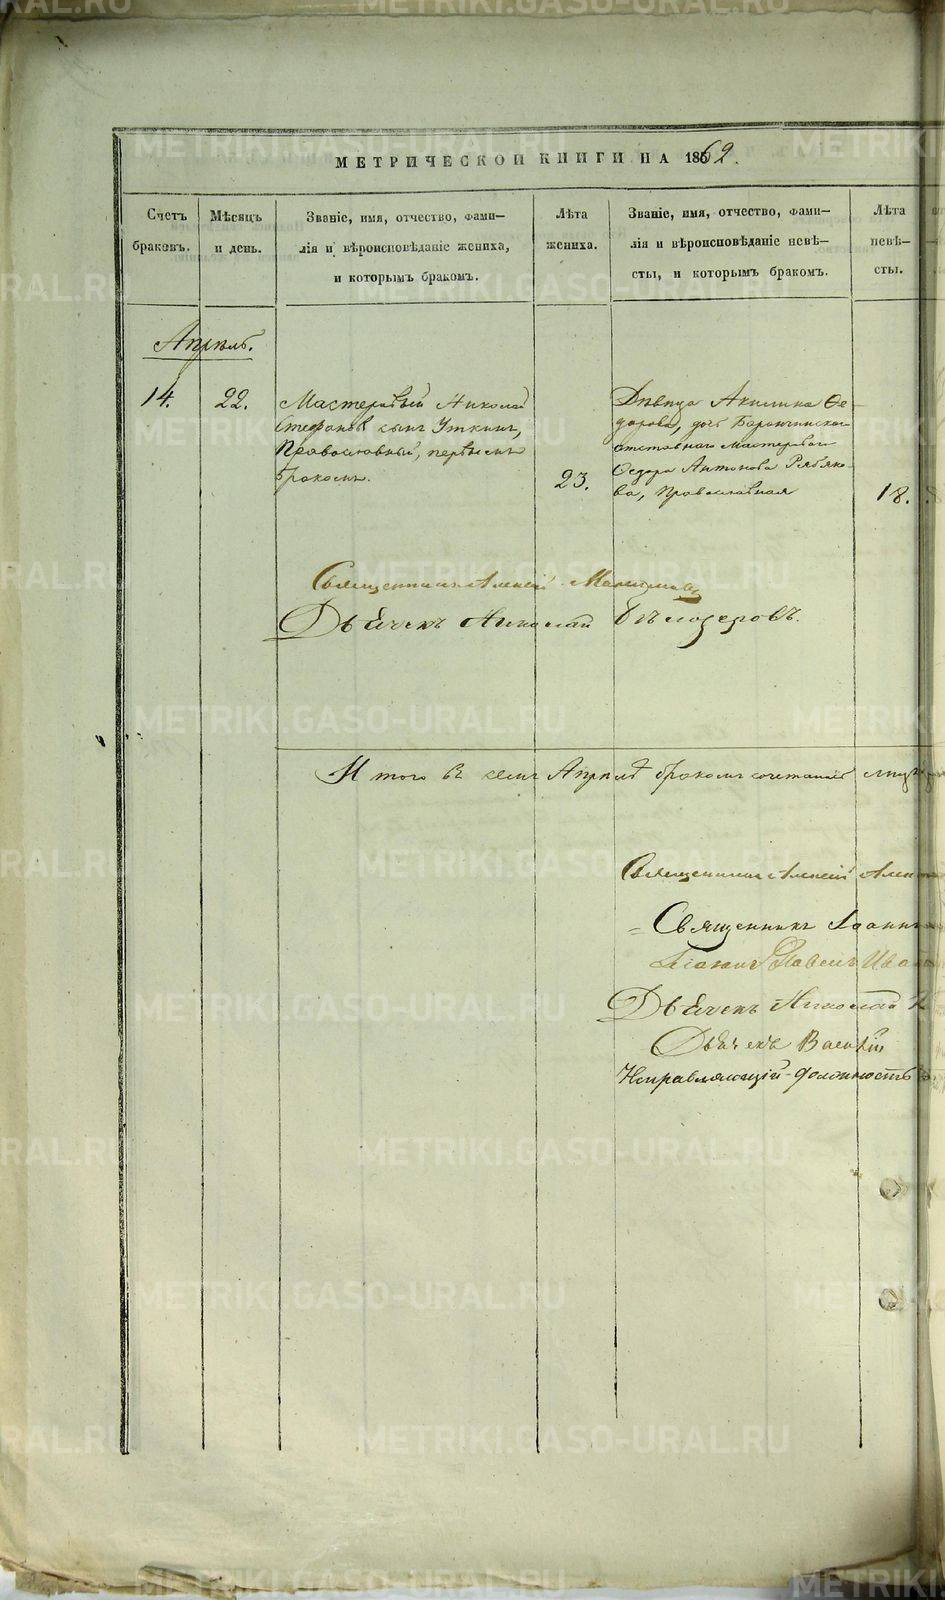 МЕТРИЧЕСКОЙ КНИГИ НА 1862.
Счетъ браковъ.
Мѣсяцъ и день.
Званіе, имя, отчество, фами-
лія и вѣроисповѣданіе жениха,
и которымъ бракомъ.
Лѣта жениха.
Званіе, имя, отчество, фами-
лія и вѣроисповѣданіе невѣ-
сты, и которымъ бракомъ.
Лѣта невѣ-
сты.
Апрѣль.
14.
22.
Мастеровый Николай
Стефановъ сынъ Уткинъ,
Православный, первымъ
бракомъ.
23.
Дѣвица Акилина Ѳе-
дорова, дочь Баранчинскаго
отставнаго Мастероваго
Ѳедора Антонова Рябяко-
ва, Православная
18.
Священникъ Алексей
Дьячекъ Николай Бѣлозеровъ.
Итого въ семъ Апрѣлѣ бракомъ сочетаній
Священникъ Алексей
Священникъ Іоаннъ
Павелъ
Дьячекъ Николай
Дьячекъ Василій
Исправляющій должность
METRIKI.GASO-URAL.RU